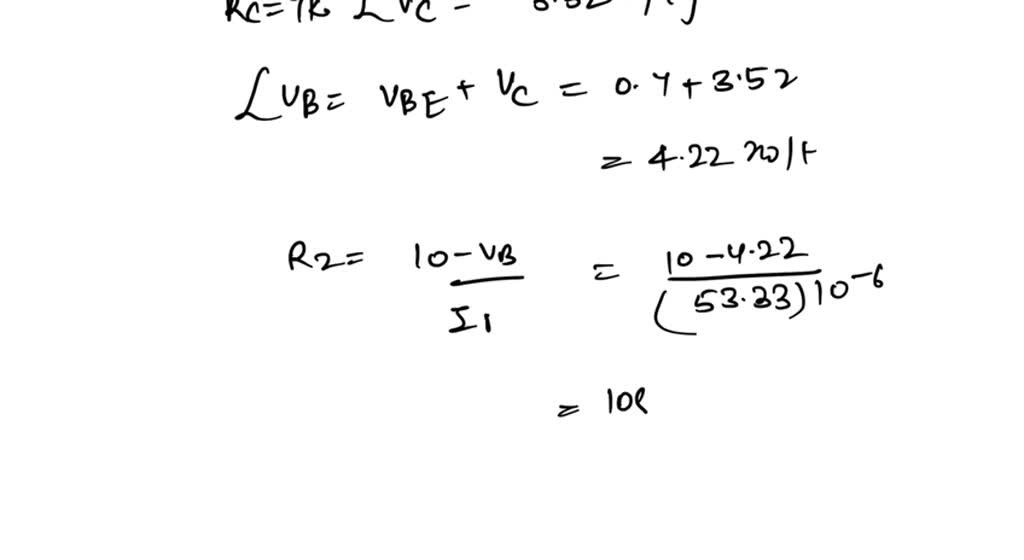 RC=1K & VC =
& VB= VBE + VC = 0.7+3.52
= 4.22 volt
R2= 10-VB / I1 = 10-4.22 / (53.33)10-6
= 108